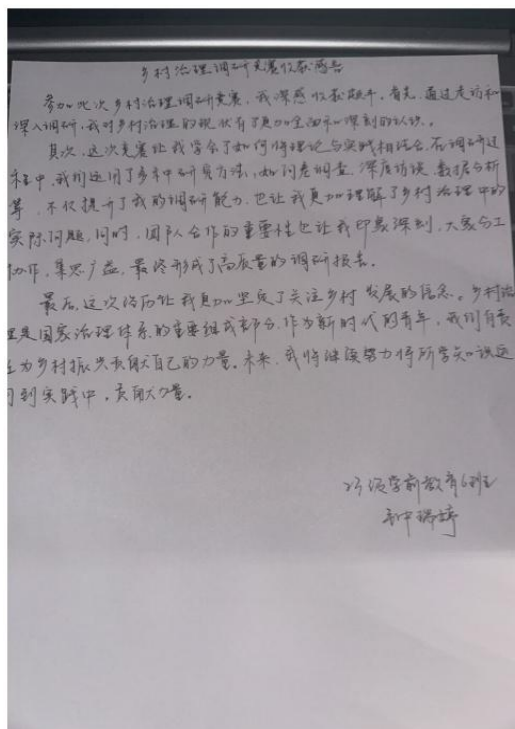 乡村治理调研竞赛收获感言
参加此次乡村治理调研竞赛，我深感收获颇丰。首先，通过走访和
深入调研，我对乡村治理的现状有了更加全面和深刻的认识。
其次，这次竞赛让我学会了如何将理论与实践相结合。在调研过
程中，我们运用了多种研究方法，如问卷调查、深度访谈、数据分析
等，不仅提升了我的调研能力，也让我更加理解了乡村治理中的
实际问题，同时，团队合作的重要性也让我印象深刻，大家分工
协作，集思广益，最终形成了高质量的调研报告。
最后，这次经历让我更加坚定了关注乡村发展的信念。乡村治
理是国家治理体系的重要组成部分，作为新时代的青年，我们有责
任为乡村振兴贡献自己的力量。未来，我将继续努力将所学知识运
用到实践中，贡献力量。
23级学前教育6班
瑞婷